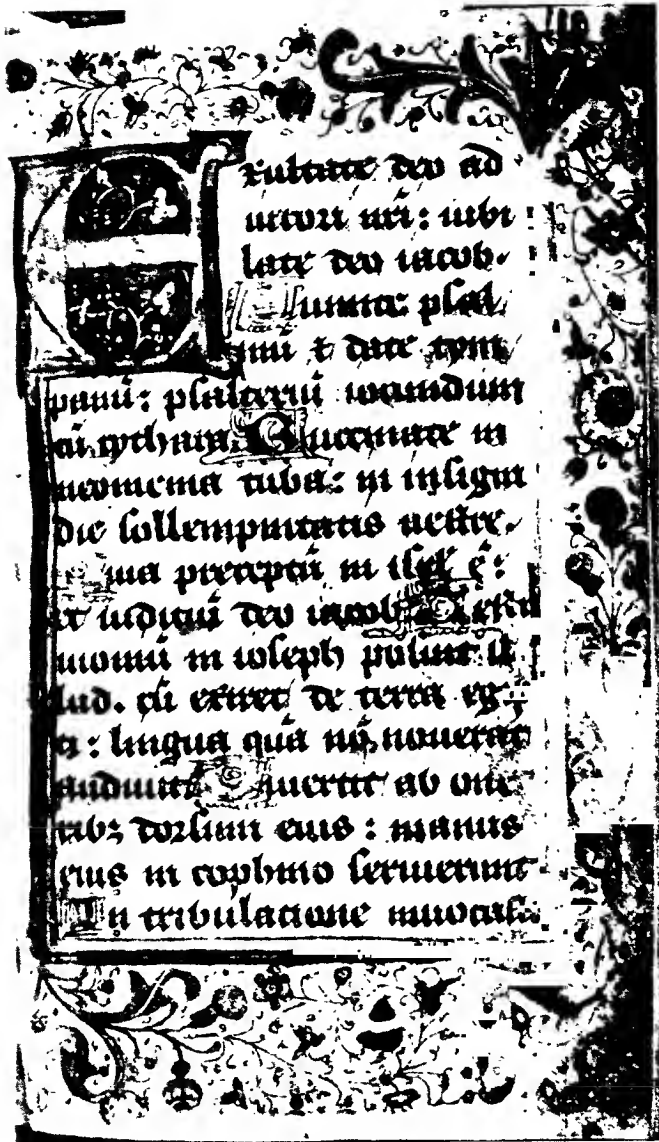 Exultate deo ad
iutori nr̄i : iubi
late deo iacob.
Sumite psal
mū ⁊ date tym
panū : psalteriū iocundum
cū cythara. Buccinate in
neomenia tuba : in insigni
die sollempnitatis uestre.
Quia preceptū in isrl̄ ē :
et iudiciū deo iacob. Testi
moniū in ioseph posuit il
lud. cū exiret de terra egy
ti : linguā quā nō nouerat
audiuit. Diuertit ab one
ribꝫ dorsum eius : manus
eius in cophino seruierunt
In tribulatione inuocasti